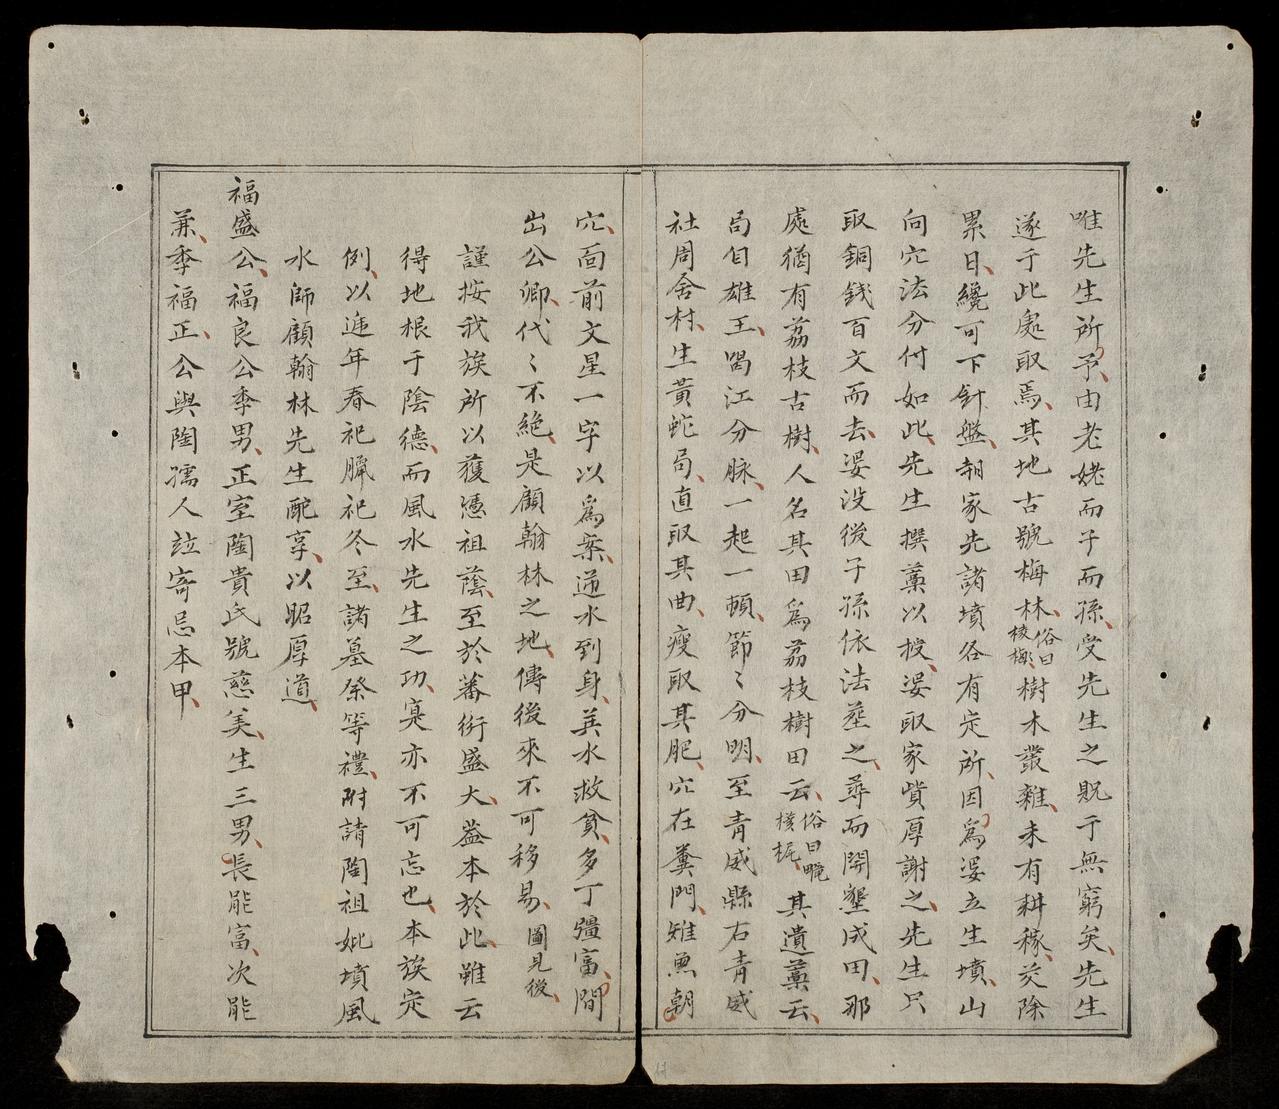 唯先生所予、由老姥而子而孫、受先生之貺于無窮矣、先生
遂于此處取焉、其地古號梅林、俗曰棱梅、樹木叢雜、未有耕稼、芟除
累日、纔可下針盤、朝家先諸墳各有定所、因爲婆立生墳、山
向穴法分付如此、先生撰藁以授、婆取家貲厚謝之、先生只
取銅錢百文而去、婆没後子孫依法塟之、尋而開墾成田、那
處猶有荔枝古樹、人名其田爲荔枝樹田云、俗曰其遺藁云、
局自雄王、喝江分脉、一起一頓、節〻分明、至青威縣右青威
社周舍村、生黃蛇局、直取其曲、瘦取其肥、穴在糞門、雉鳧朝
穴、面前文星一字以爲案、逆水到身、英水救貧、多丁彊富、間
出公卿、代〻不絶、是顧翰林之地、傳後來不可移易、圖見後、
謹按我族所以獲憑祖蔭、至於蕃衍盛大、葢本於此、雖云
得地根于陰德、而風水先生之功、寔亦不可忘也、本族定
例、以逓年春祀臘祀冬至、諸墓祭等禮、附請陶祖妣墳風
水師顧翰林先生配享、以昭厚道、
福盛公、福良公季男、正室陶貴氏號慈美、生三男、長能富、次能
兼、季福正、公與陶孺人竝寄忌本甲、